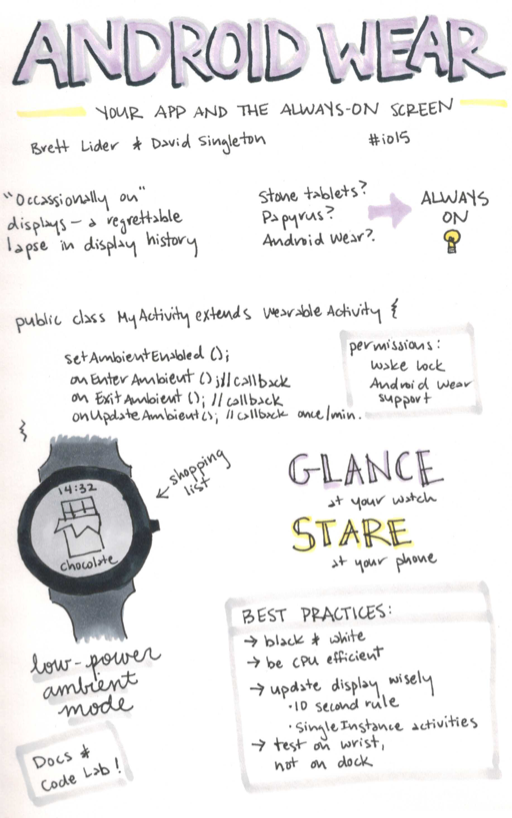 ANDROID WEAR
YOUR APP AND THE ALWAYS-ON SCREEN
Brett Lider & David Singleton #io15
"Occassionally on"
displays – a regrettable
lapse in display history
Stone tablets?
Papyrus?
Android Wear?
ALWAYS
ON
public class MyActivity extends WearableActivity {
setAmbientEnabled ();
onEnterAmbient (); // callback
onExitAmbient (); // callback
onUpdateAmbient(); // callback once/min.
}
permissions:
wake lock
Android wear
support
14:32
chocolate
shopping
list
GLANCE
at your watch
STARE
at your phone
low-power
ambient
mode
BEST PRACTICES:
→ black & white
→ be CPU efficient
→ update display wisely
· 10 second rule
· SingleInstance activities
→ test on wrist,
not on dock
Docs &
Code Lab!